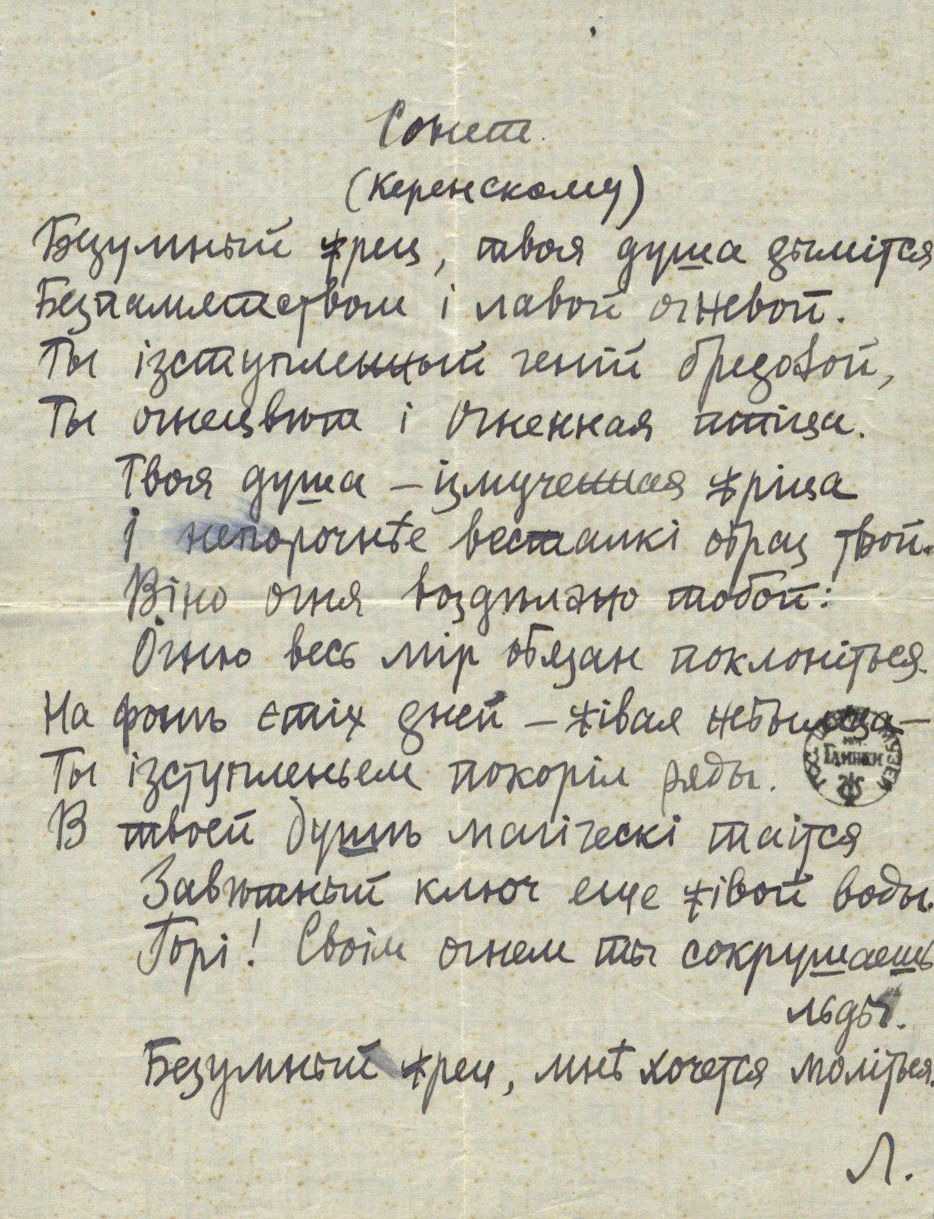 Сонет.
(Керенскому)
Безумный жрец, твоя душа дымітся
Безпамятством і лавой огневой.
Ты ізступленный геній бредовой,
Ты огнецвѣт і Огненная птіца.
Твоя душа – ізмученная жріца
І непорочнѣе весталкі образ твой.
Віно огня воздымлено тобой:
Огню весь мір обязан поклоніться.
На фонѣ етіх дней – жівая небыліца –
Ты ізступленьем покоріл ряды.
В твоей душѣ магіческі таітся
Завѣтный ключ еще жівой воды.
Горі! Своім огнем ты сокрушаешь
льды.
Безумный жрец, мнѣ хочется моліться.
Л.
ИМ.
ГЛИНКИ
МУЗЕЙ